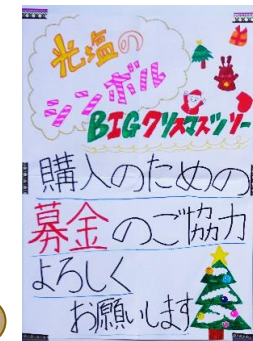 光塩の
シンボル
BIGクリスマスツリー
購入のための
募金のご協力
よろしく
お願いします